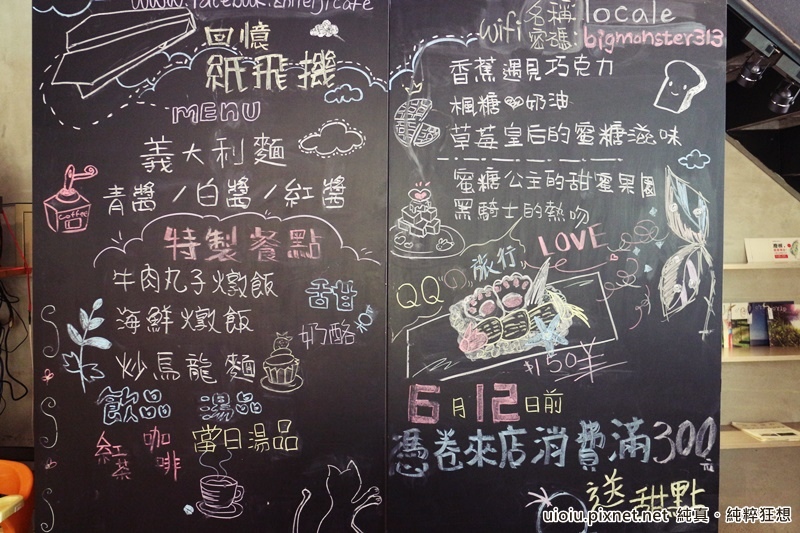 www.facebook.zhifeijicafe
回憶
紙飛機
MENU
義大利麵
青醬/白醬/紅醬
特製餐點
牛肉丸子燉飯
海鮮燉飯
炒烏龍麵
甜甘
奶酪
飲品
湯品
紅茶
咖啡
當日湯品
Coffee
wifi
名稱: locale
密碼: bigmonster313
香蕉遇見巧克力
楓糖奶油
草莓皇后的蜜糖滋味
蜜糖公主的甜蜜果園
黑騎士的熱吻
LOVE
旅行
QQ
$150
6月12日前
憑卷來店消費滿300元
送甜點
uioiu.pixnet.net 純真。純粹狂想